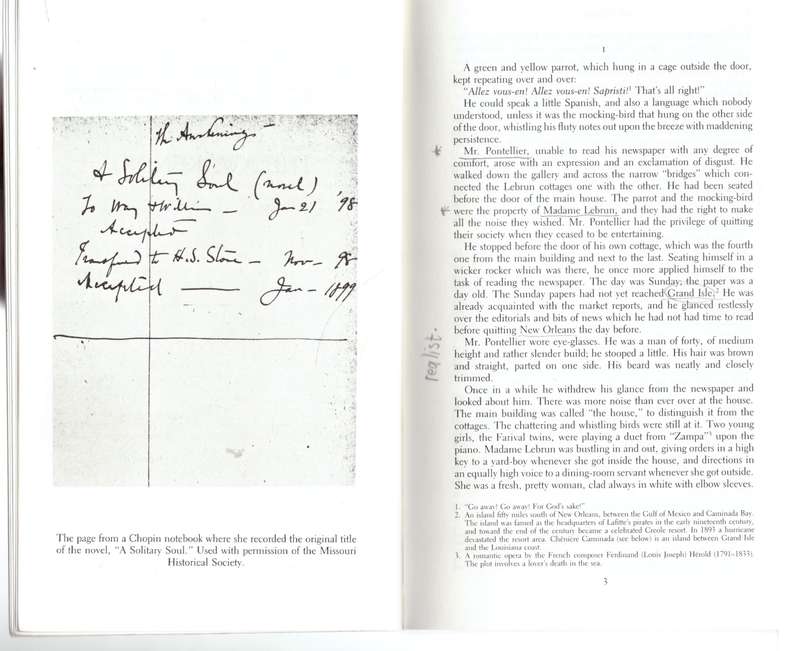 The Awakening
A Solitary Soul (novel)
To Way & Williams — Jan 21 '98
Accepted
Transferred to H.S. Stone — Nov — 98
Accepted — Jan — 1899
The page from a Chopin notebook where she recorded the original title
of the novel, “A Solitary Soul.” Used with permission of the Missouri
Historical Society.
I
A green and yellow parrot, which hung in a cage outside the door,
kept repeating over and over:
“Allez vous-en! Allez vous-en! Sapristi!¹ That's all right!”
He could speak a little Spanish, and also a language which nobody
understood, unless it was the mocking-bird that hung on the other side
of the door, whistling his fluty notes out upon the breeze with maddening
persistence.
Mr. Pontellier, unable to read his newspaper with any degree of
comfort, arose with an expression and an exclamation of disgust. He
walked down the gallery and across the narrow “bridges” which con-
nected the Lebrun cottages one with the other. He had been seated
before the door of the main house. The parrot and the mocking-bird
were the property of Madame Lebrun, and they had the right to make
all the noise they wished. Mr. Pontellier had the privilege of quitting
their society when they ceased to be entertaining.
He stopped before the door of his own cottage, which was the fourth
one from the main building and next to the last. Seating himself in a
wicker rocker which was there, he once more applied himself to the
task of reading the newspaper. The day was Sunday; the paper was a
day old. The Sunday papers had not yet reached Grand Isle.² He was
already acquainted with the market reports, and he glanced restlessly
over the editorials and bits of news which he had not had time to read
before quitting New Orleans the day before.
realist.
Mr. Pontellier wore eye-glasses. He was a man of forty, of medium
height and rather slender build; he stooped a little. His hair was brown
and straight, parted on one side. His beard was neatly and closely
trimmed.
Once in a while he withdrew his glance from the newspaper and
looked about him. There was more noise than ever over at the house.
The main building was called “the house,” to distinguish it from the
cottages. The chattering and whistling birds were still at it. Two young
girls, the Farival twins, were playing a duet from “Zampa”³ upon the
piano. Madame Lebrun was bustling in and out, giving orders in a high
key to a yard-boy whenever she got inside the house, and directions in
an equally high voice to a dining-room servant whenever she got outside.
She was a fresh, pretty woman, clad always in white with elbow sleeves.
1. “Go away! Go away! For God's sake!”
2. An island fifty miles south of New Orleans, between the Gulf of Mexico and Caminada Bay.
The island was famed as the headquarters of Lafitte's pirates in the early nineteenth century,
and toward the end of the century became a celebrated Creole resort. In 1893 a hurricane
devastated the resort area. Chênière Caminada (see below) is an island between Grand Isle
and the Louisiana coast.
3. A romantic opera by the French composer Ferdinand (Louis Joseph) Hérold (1791–1833).
The plot involves a lover's death in the sea.
3